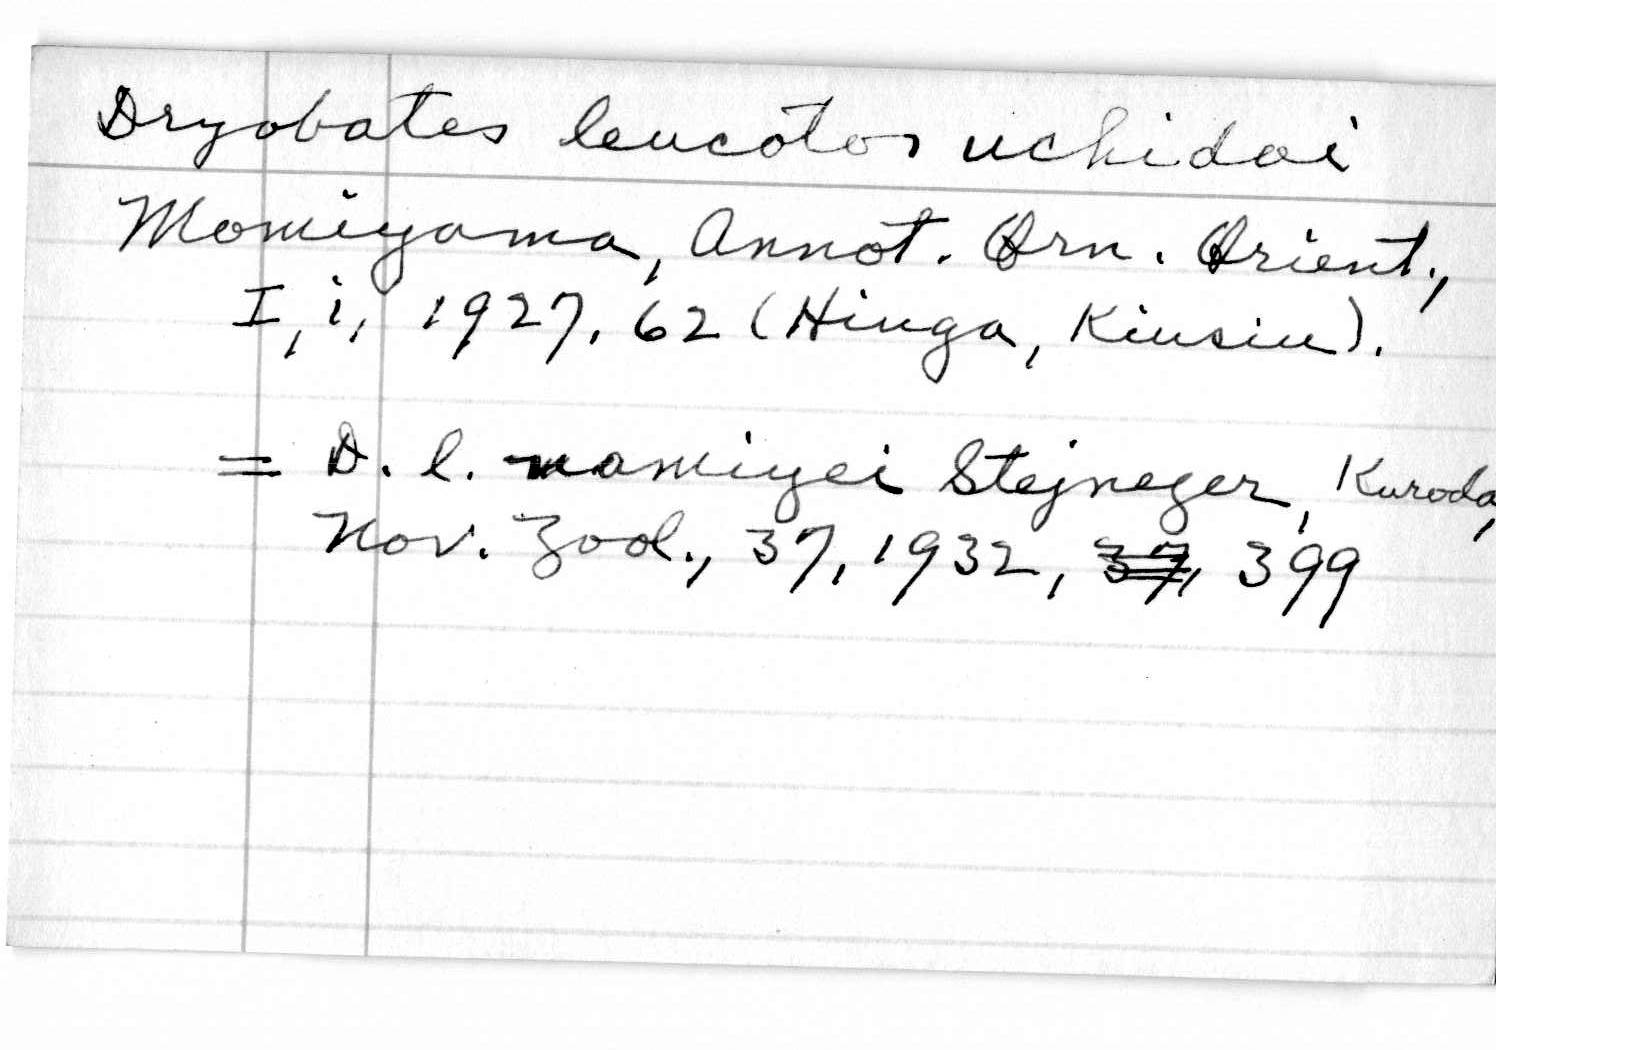 Dryobates leucotos uchidai
Momiyama, Annot. Orn. Orient.,
I, i, 1927, 62 (Hiuga, Kiusiu).
= D. l. namiyei Stejneger, Kuroda,
Nov. Zool., 37, 1932, 37, 399